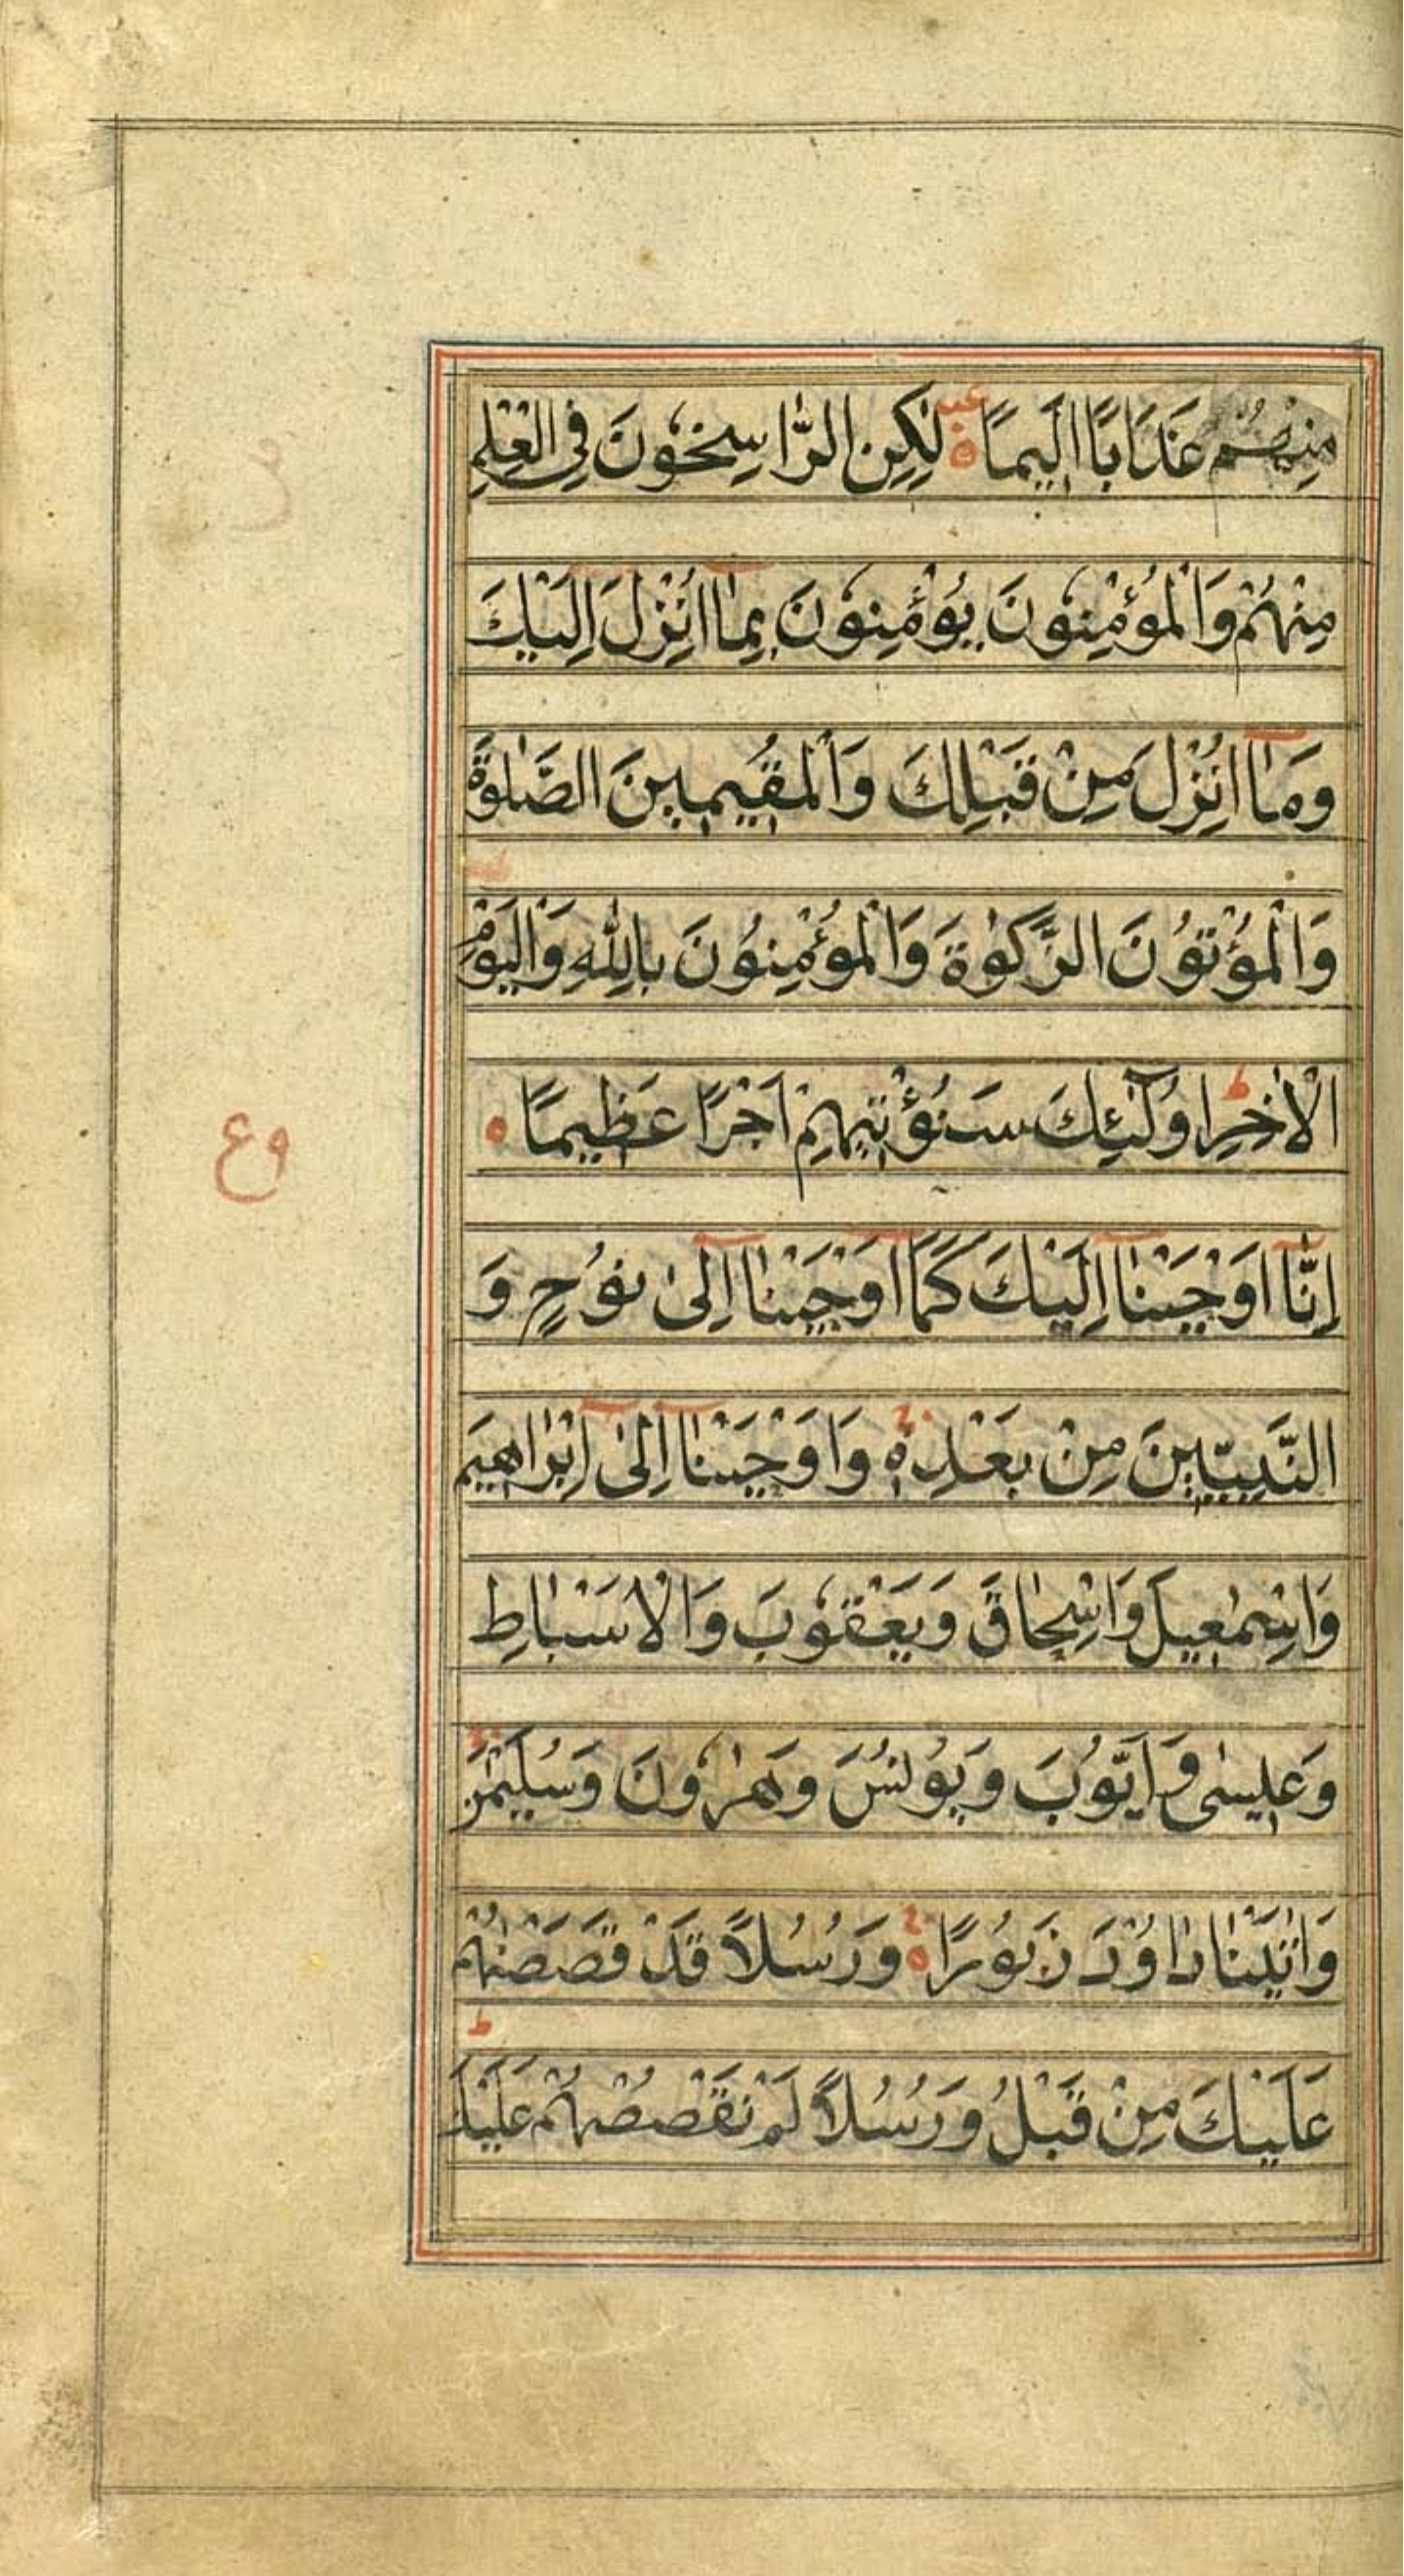 مِنْهُمْ عَذَابًا اَلِيمًا ۝ لٰكِنِ الرّٰاسِخُونَ فِى الْعِلْمِ
مِنْهُمْ وَالْمُؤْمِنُونَ يُؤْمِنُونَ بِمٰا اُنْزِلَ اِلَيْكَ
وَمٰا اُنْزِلَ مِنْ قَبْلِكَ وَالْمُقِيمِينَ الصَّلٰوةَ
وَالْمُؤْتُونَ الزَّكٰوةَ وَالْمُؤْمِنُونَ بِاللّٰهِ وَالْيَوْمِ
الْاٰخِرِ ط اُولٰٓئِكَ سَنُؤْتِيهِمْ اَجْرًا عَظِيمًا ۝
ع
اِنّٰٓا اَوْحَيْنٰٓا اِلَيْكَ كَمَآ اَوْحَيْنٰٓا اِلىٰ نُوحٍ وَ
النَّبِيّٖينَ مِنْ بَعْدِهٖ وَاَوْحَيْنٰٓا اِلىٰٓ اِبْرٰاهِيمَ
وَاِسْمٰعِيلَ وَاِسْحٰاقَ وَيَعْقُوبَ وَالْاَسْبٰاطِ
وَعِيسٰى وَاَيُّوبَ وَيُونُسَ وَهٰرُونَ وَسُلَيْمٰنَ
وَاٰتَيْنٰا دٰاوُدَ زَبُورًا ۝ وَرُسُلًا قَدْ قَصَصْنٰهُمْ
عَلَيْكَ مِنْ قَبْلُ وَرُسُلًا لَمْ نَقْصُصْهُمْ عَلَيْكَ ط